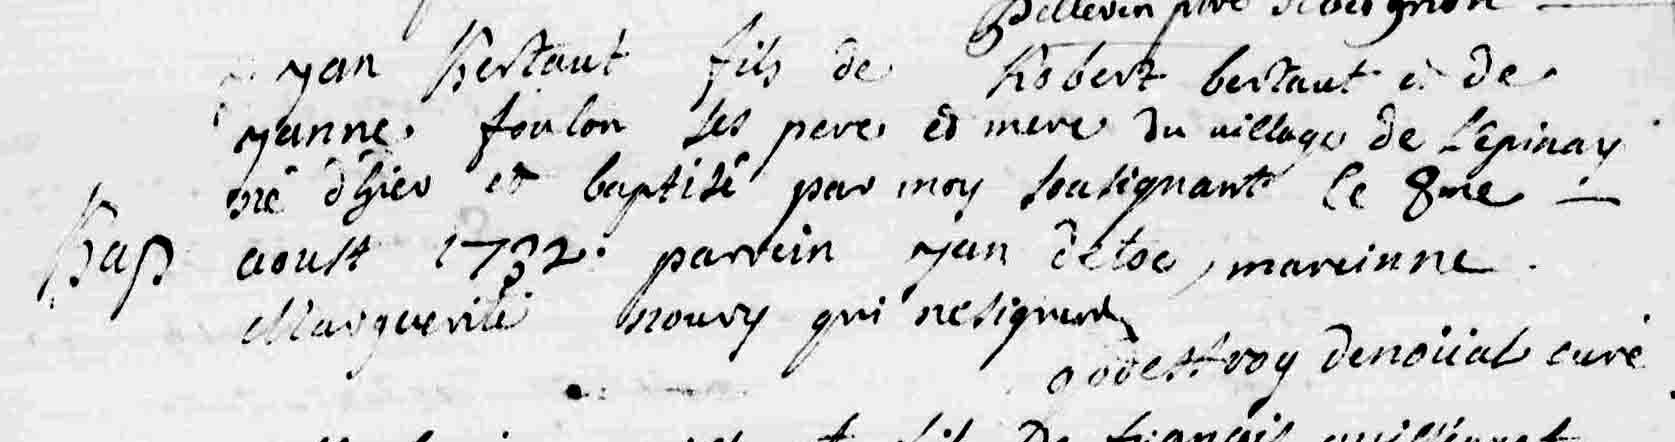 yan bertaut fils de Robert bertaut et de
yanne foulon ses pere et mere du village de Lepinay
né dhier et baptisé par moy sousignant le 8me
Bap aoust 1732. parrein yan detoc, mareinne
Marguerite noury qui nesignent
godeffroy denoüal curé